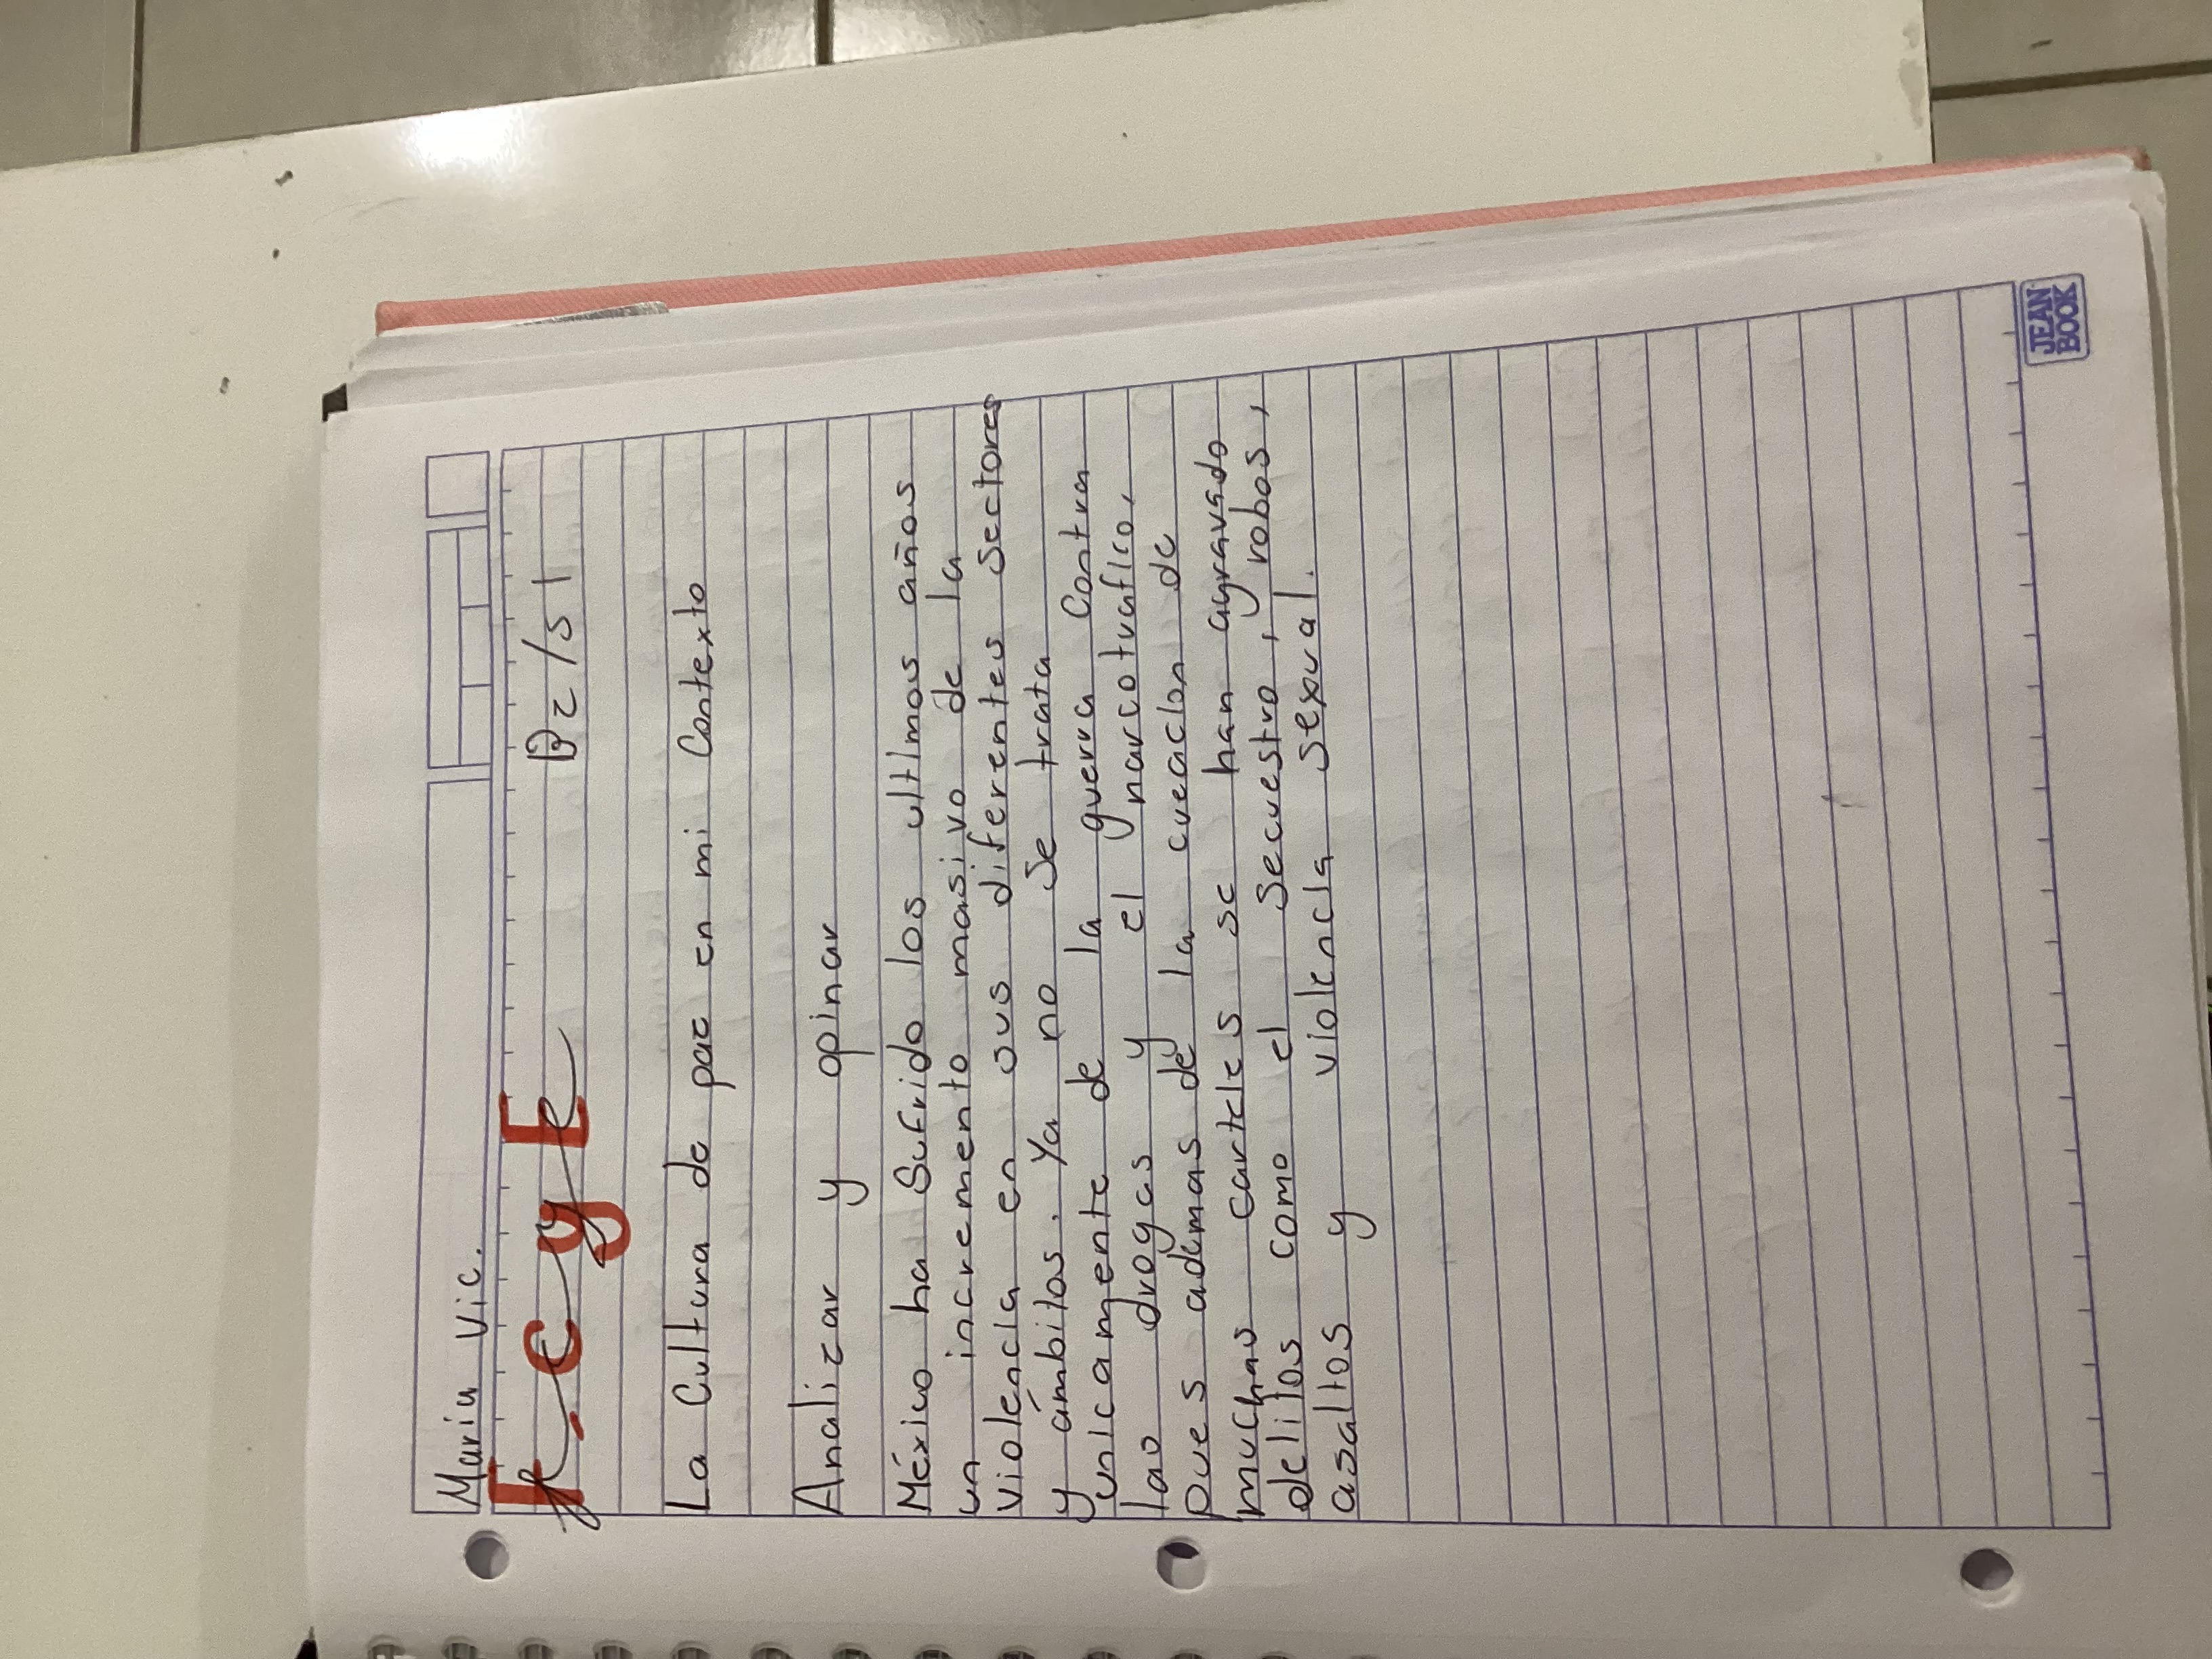 Maria Vic.
F. C. y E
B2/S1
La Cultura de paz en mi Contexto
Analizar y opinar
México ha Sufrido los ultimos años
un incremento masivo de la
violencia en sus diferentes sectores
y ámbitos. Ya no se trata
unicamente de la guerra contra
las drogas y el narcotrafico,
pues ademas de la creacion de
muchas carteles se han agravado
delitos como el secuestro, robos,
asaltos y violencia sexual.
JEAN
BOOK